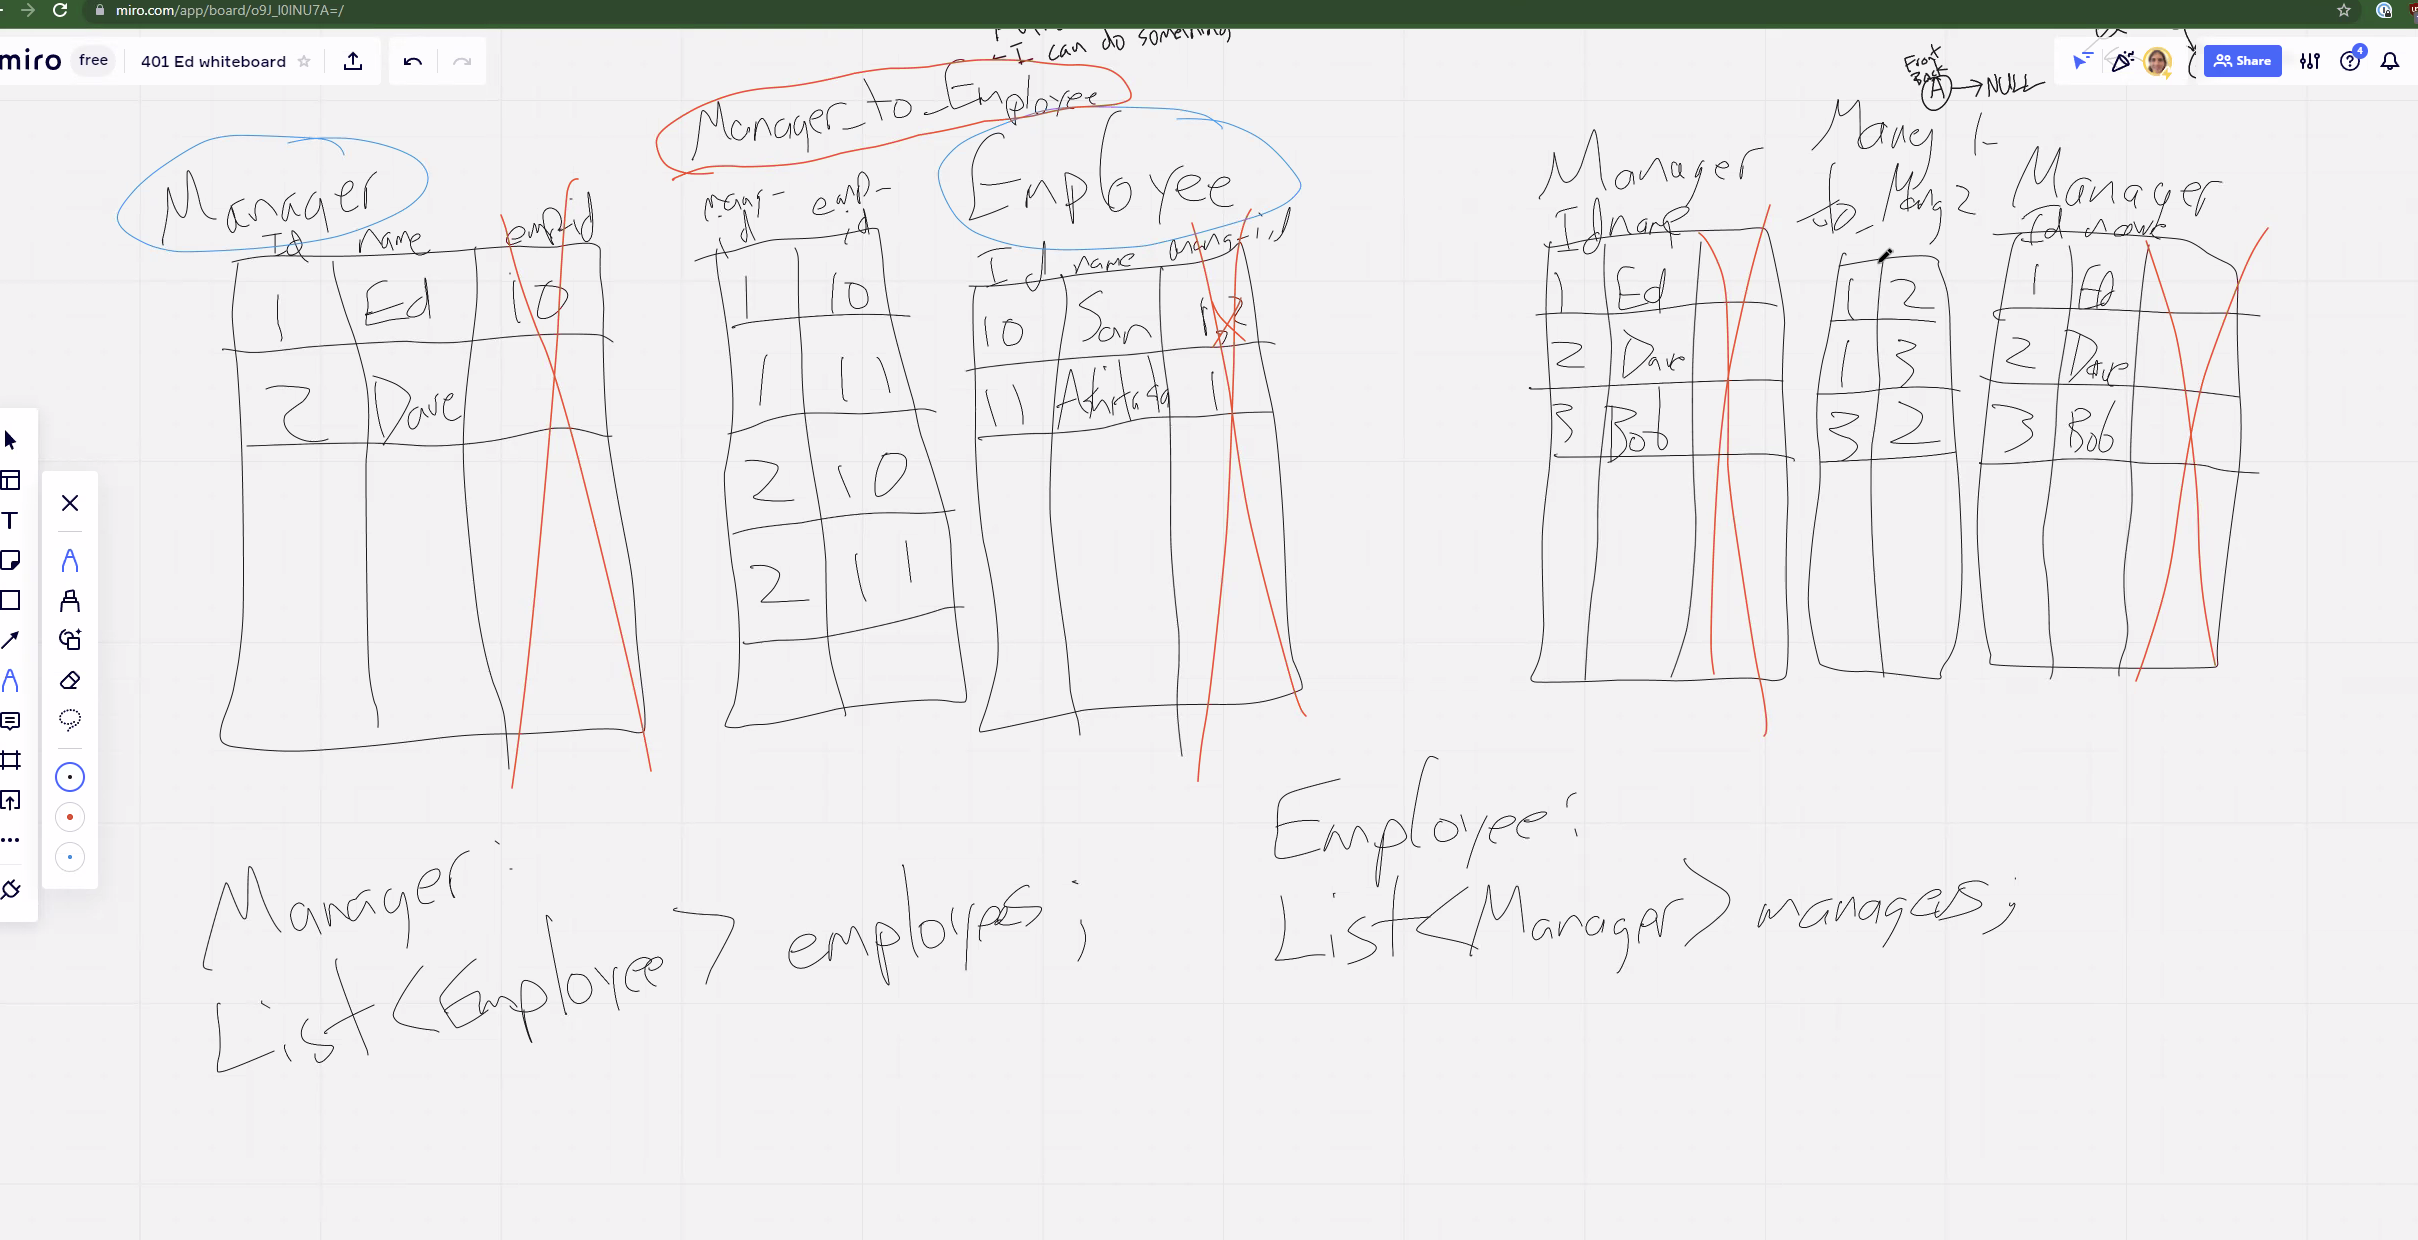 miro.com/app/board/o9J_l0INU7A=/
miro
free
401 Ed whiteboard
Share
4
← I can do something
Front
Back
A → NULL
Manager_to_Employee
Manager
Id name emp_id
1 Ed 10
2 Dave
mang-id emp-id
1 10
1 11
2 10
2 11
Employee
Id name mang-id
10 Sam
11 1
Manager
Id name
1 Ed
2 Dave
3 Bob
Mang 1-
to_Mang 2
1 2
1 3
3 2
Manager
Id name
1 Ed
2 Dave
3 Bob
Manager:
List<Employee> employees;
Employee:
List<Manager> managers;